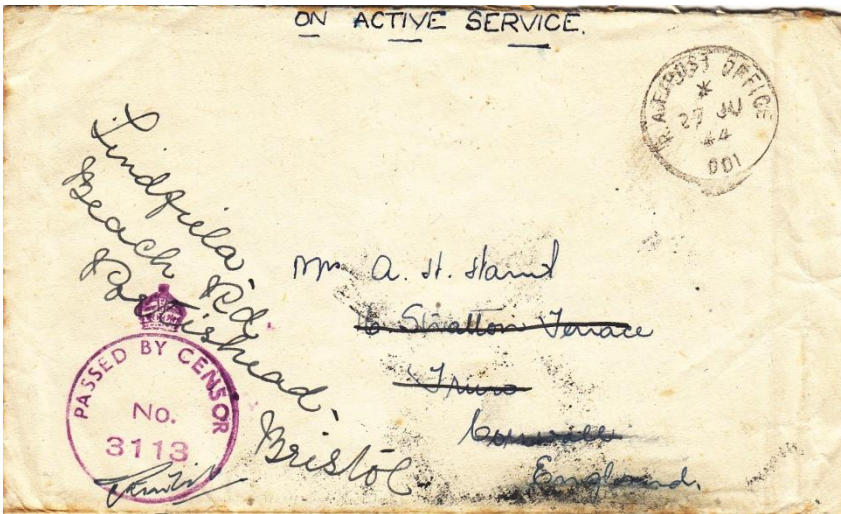 ON ACTIVE SERVICE.
R.A.F. POST OFFICE
*
27 JU
44
001
Lindfield
Beach Rd
Portishead,
Bristol
Mrs A. H.
6. Stratton Terrace
Truro
Cornwall
England.
PASSED BY CENSOR
No.
3113